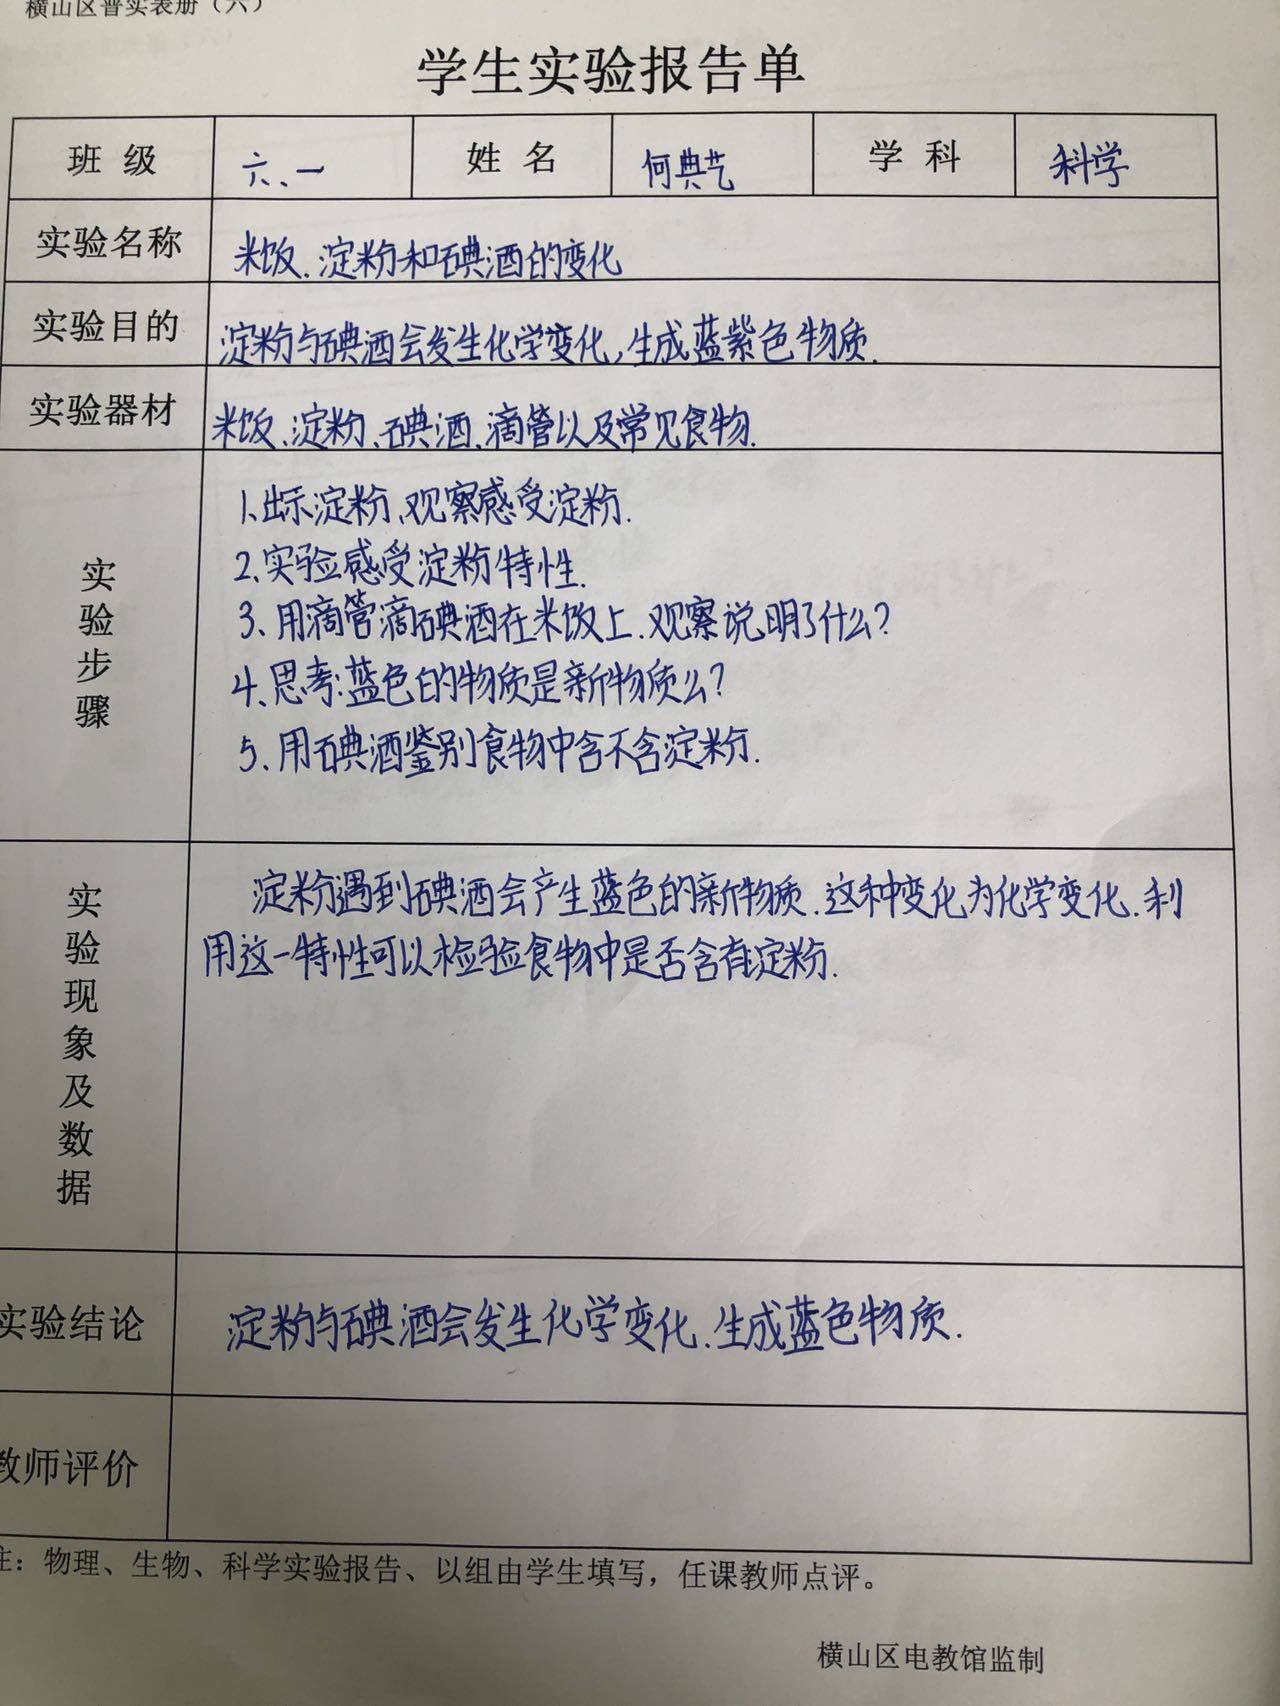 横山区普实表册（六）
学生实验报告单
班 级 六、一 姓 名 何典艺 学 科 科学
实验名称 米饭、淀粉和碘酒的变化
实验目的 淀粉与碘酒会发生化学变化,生成蓝紫色物质.
实验器材 米饭、淀粉、碘酒、滴管以及常见食物.
实验步骤
1、出示淀粉、观察感受淀粉.
2、实验感受淀粉特性.
3、用滴管滴碘酒在米饭上.观察说明了什么?
4、思考:蓝色的物质是新物质么?
5、用碘酒鉴别食物中含不含淀粉.
实验现象及数据
淀粉遇到碘酒会产生蓝色的新物质.这种变化为化学变化.利
用这一特性可以检验食物中是否含有淀粉.
实验结论 淀粉与碘酒会发生化学变化.生成蓝色物质.
教师评价
注：物理、生物、科学实验报告、以组由学生填写，任课教师点评。
横山区电教馆监制